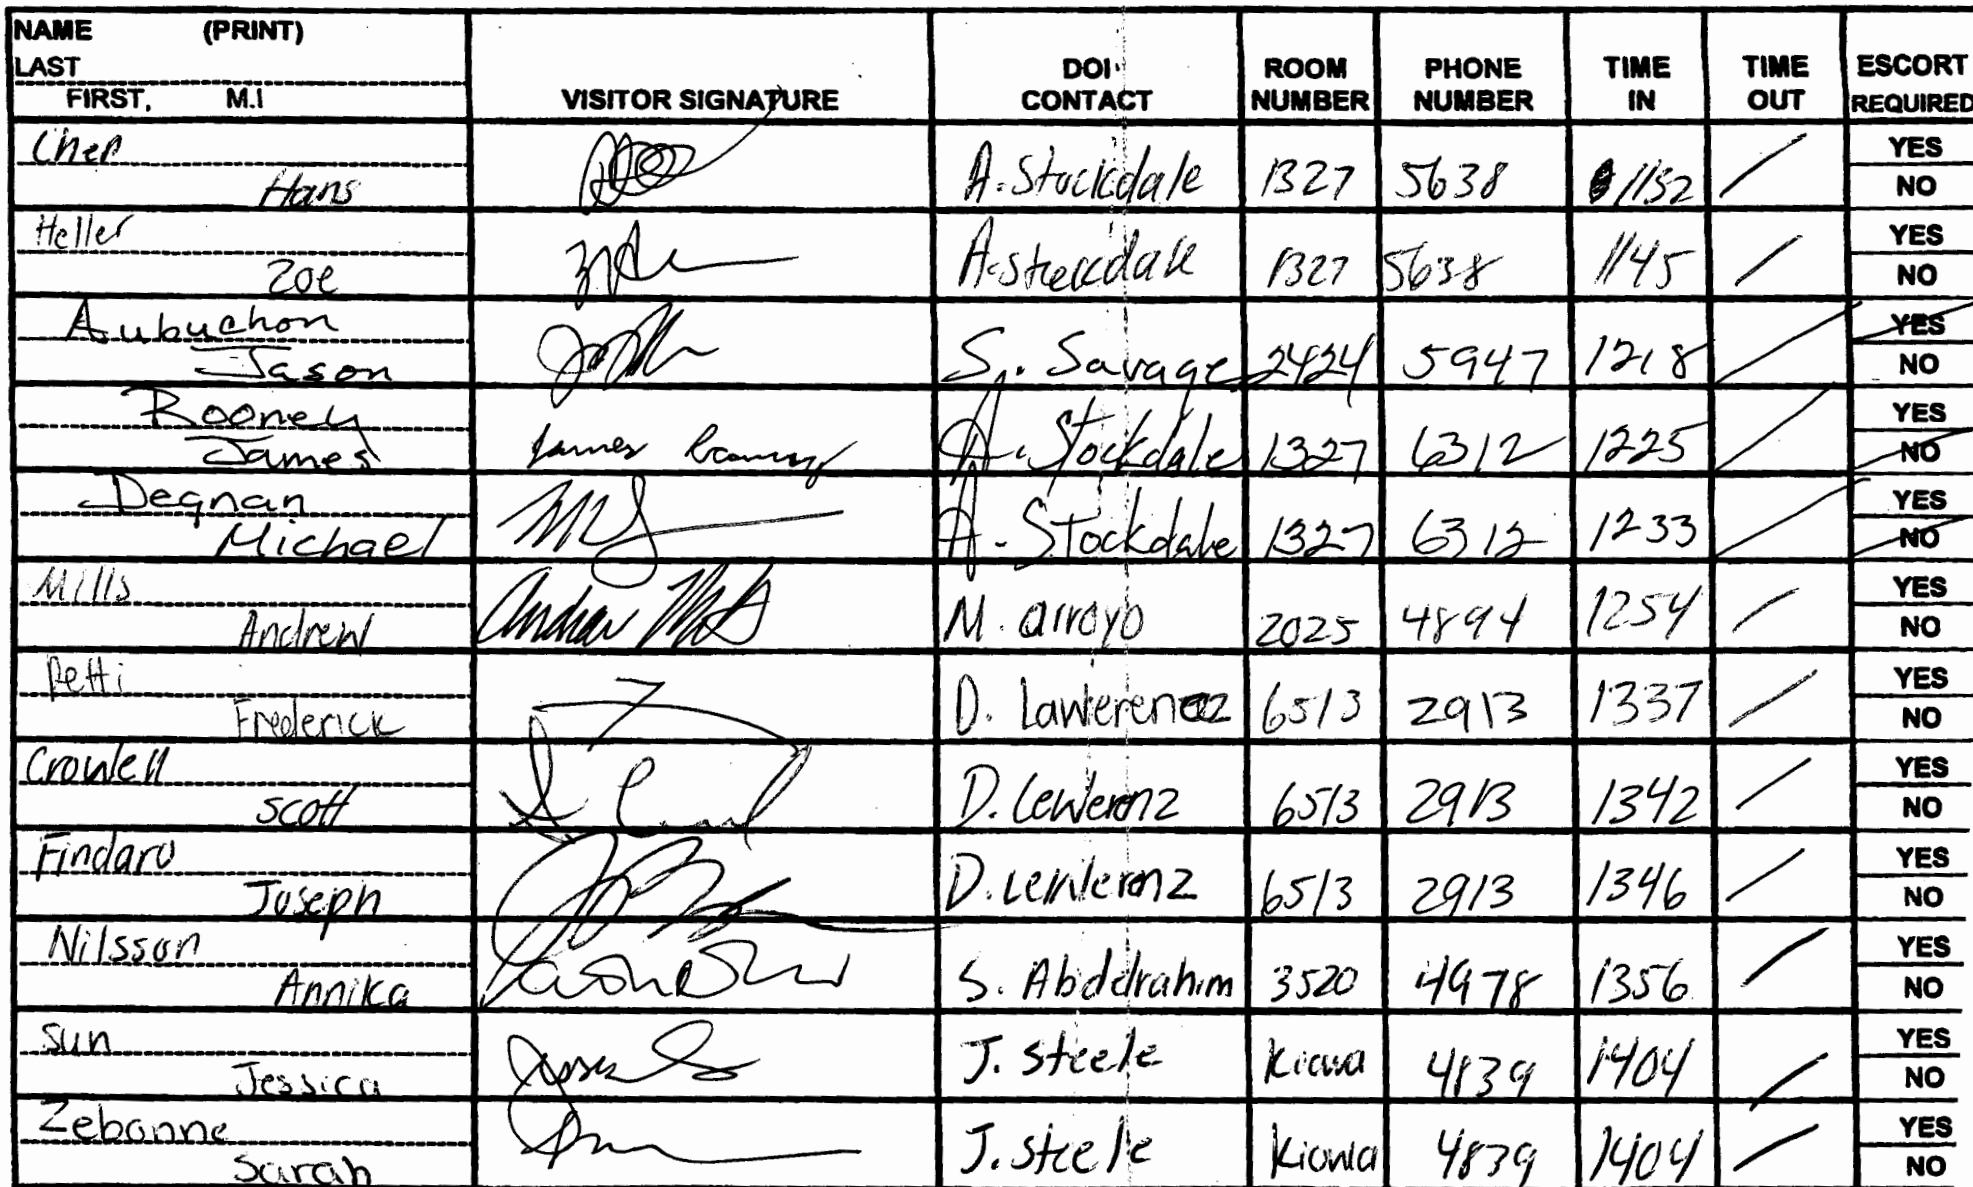 NAME (PRINT)
LAST
FIRST, M.I
VISITOR SIGNATURE
DOI CONTACT
ROOM NUMBER
PHONE NUMBER
TIME IN
TIME OUT
ESCORT REQUIRED
Chen
Hans
A. Stockdale 1327 5638 1132 YES NO
Heller
Zoe
A. Stockdale 1327 5638 1145 YES NO
Aubuchon
Jason
S. Savage 2424 5947 1218 YES NO
Rooney
James
James Rooney A. Stockdale 1327 6312 1225 YES NO
Degnan
Michael
A. Stockdale 1327 6312 1233 YES NO
Mills
Andrew
Andrew M. arroyo 2025 4894 1254 YES NO
Petti
Frederick
D. Lawerenz 6513 2913 1337 YES NO
Crowell
Scott
D. Lewerenz 6513 2913 1342 YES NO
Findaro
Joseph
D. Lewerenz 6513 2913 1346 YES NO
Nilsson
Annika
S. Abdelrahim 3520 4978 1356 YES NO
Sun
Jessica
J. Steele Kiowa 4839 1404 YES NO
Zebonne
Sarah
J. Steele Kiowa 4839 1404 YES NO